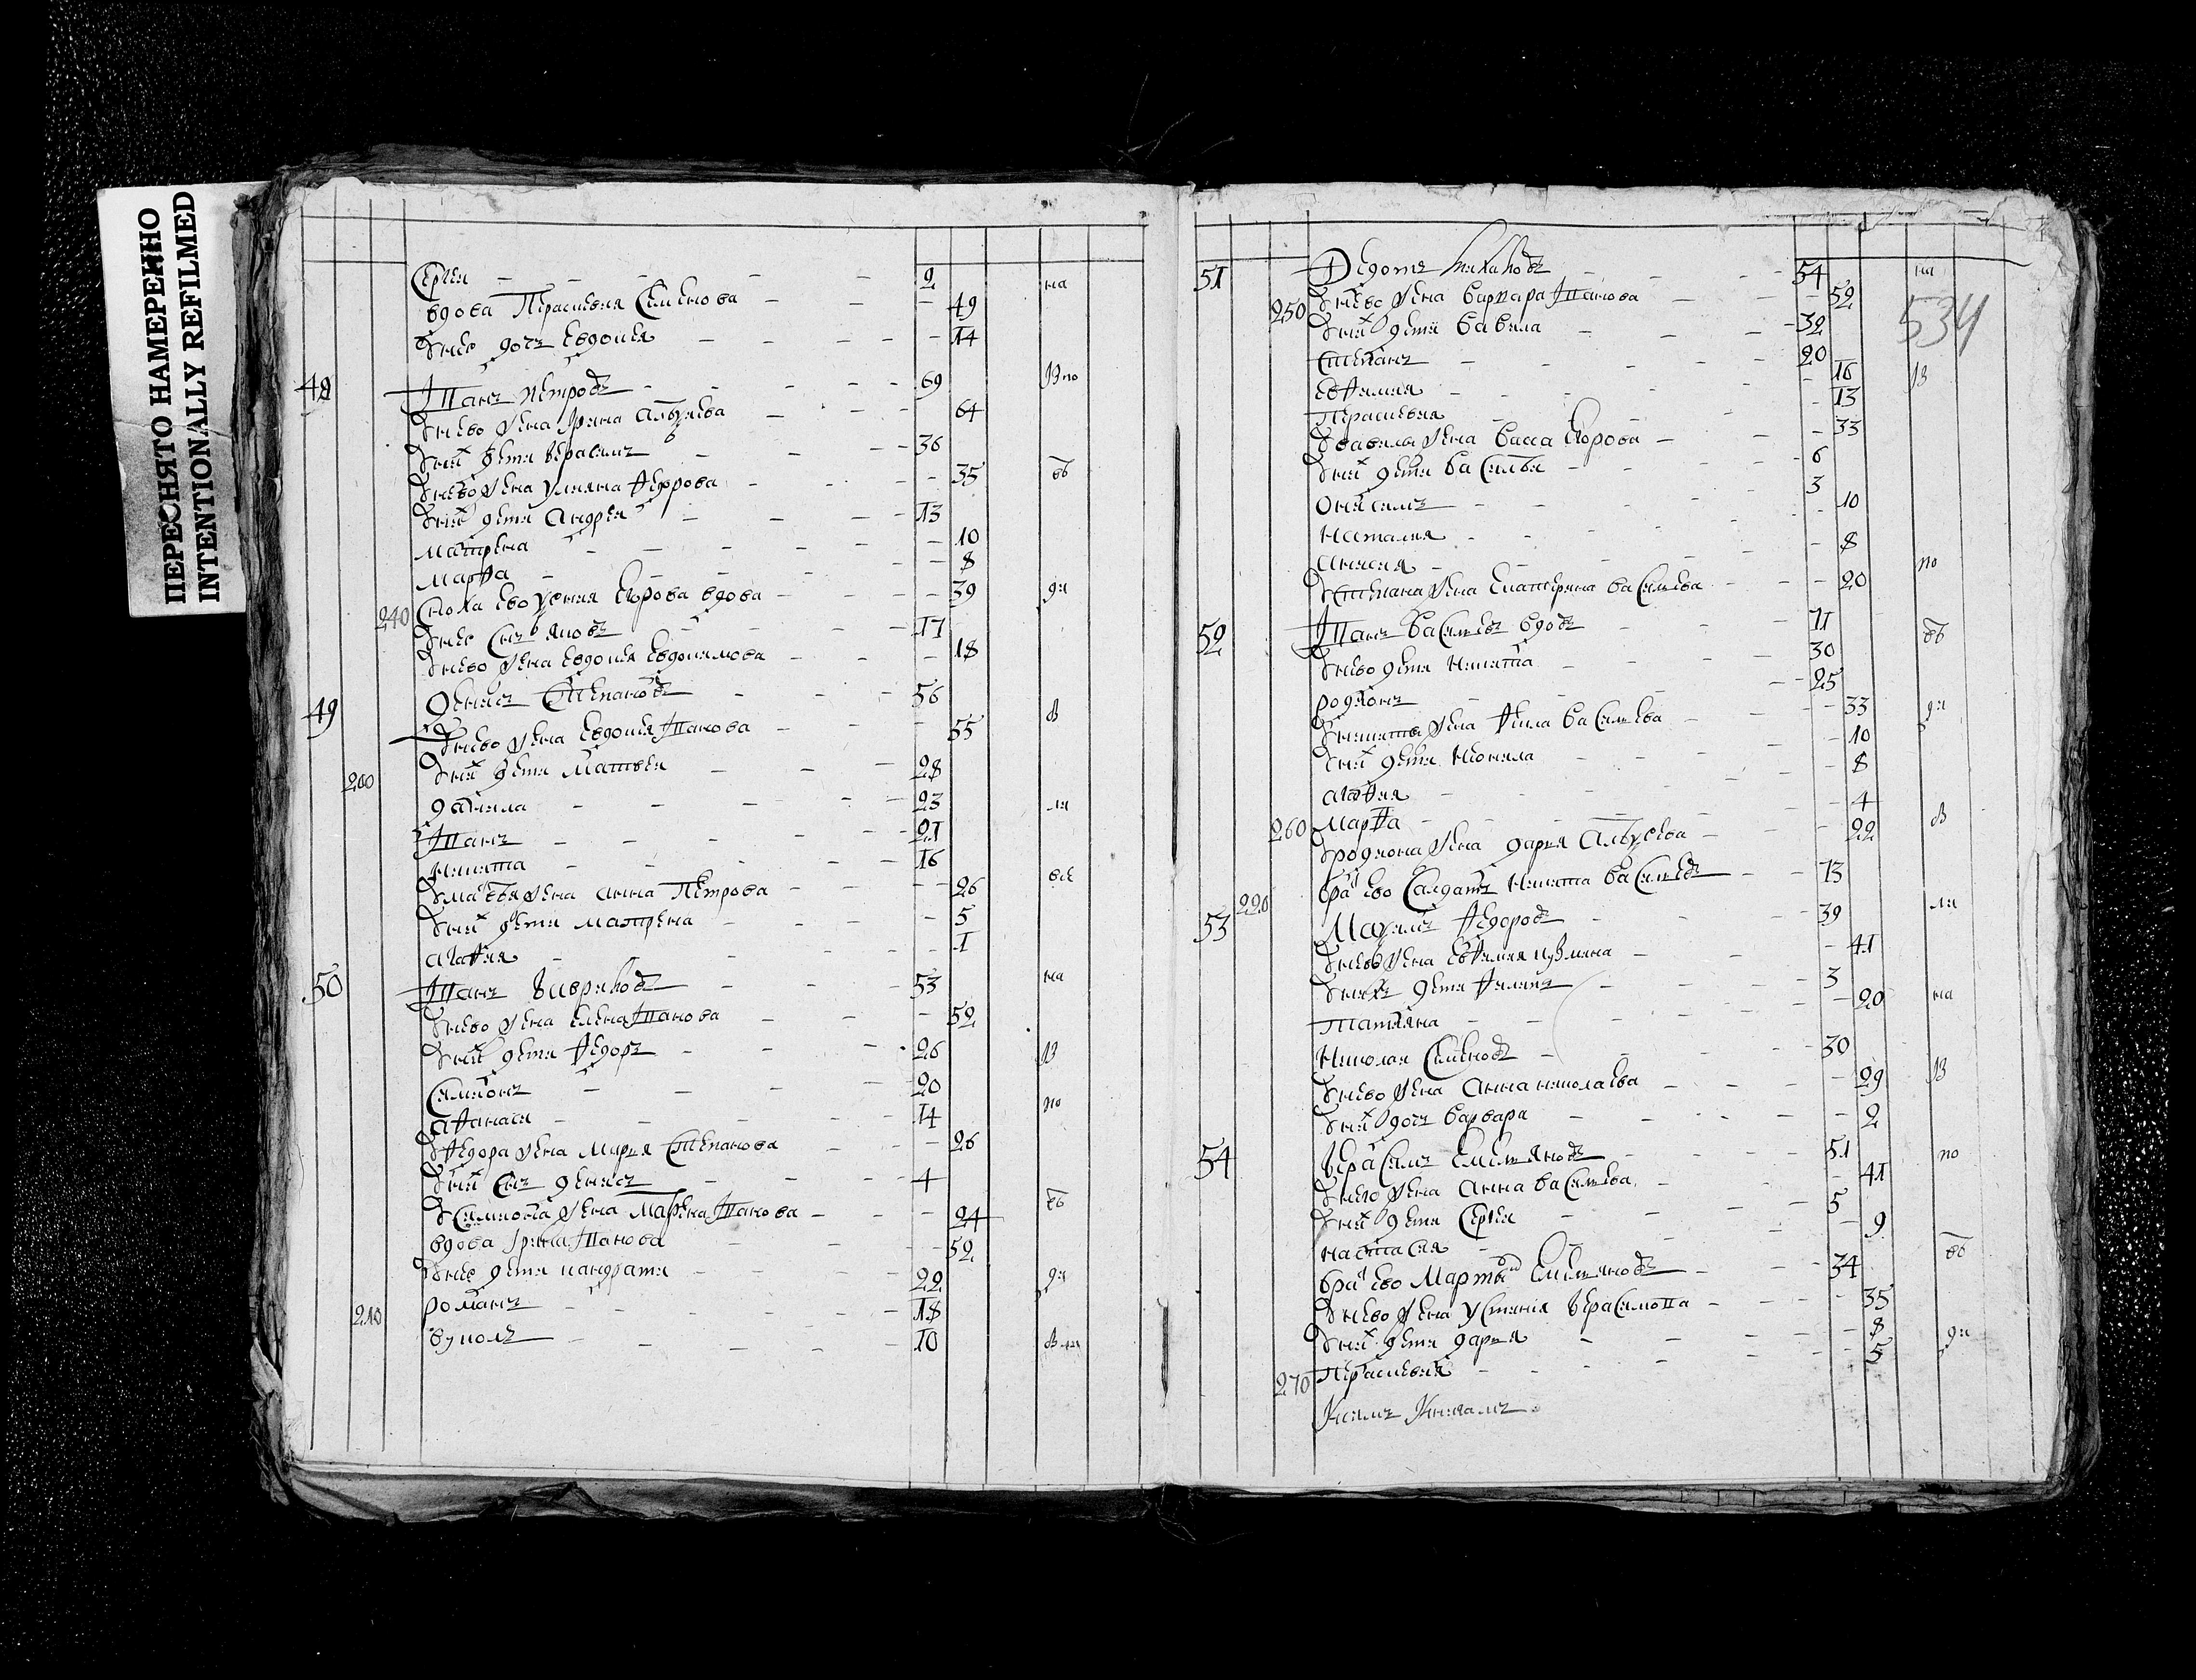 ПЕРЕСНЯТО НАМЕРЕННО
INTENTIONALLY REFILMED
Сергеи 2 на
вдова Парасковья Семенова 49
унее дочь Евдокея 14
48 Иванъ Петровъ 69
унево жена Ирина 64
уних дети Герасимъ 36
унево жена Уляна Федорова 35
уних дети Андреи 13
Матрена 10
Марфа 8
240 Сноха ево Егорова вдова 39
унее сынъ 17
унево жена Евдокея Евдокимова 18
49 Денисъ Степановъ 56
унево жена Евдокея Иванова 55
200 уних дети Матвеи 28
Данила 23
Иванъ 21
Никита 16
уматвея жена Анна Петрова 26
уних дети Матрена 5
Агафия 1
50 Иванъ Гавриловъ 53 на
унево жена Елена Иванова 52
уних дети Федоръ 26
Симионъ 20
Афанасеи 14 по
уфедора жена Мария Степанова 26
уних сынъ Денисъ 4
усимиона жена Марена Иванова 24
вдова Ирина Иванова 52
унее дети Кондратеи 22
210 Романъ 18
10
51 Федотъ 54
534
250 унево жена Варвара Иванова 52
уних дети Вавила 32
Степанъ 20
Евфимия 16
Парасковья 13
увавилы жена Васса Егорова 33
уних дети Василеи 6
Онисимъ 3
Наталия 10
Анисия 8
устепана жена Екатерина Василева 20 по
52 Иванъ Василевъ вдовъ 71
унево дети Никита 30
Родионъ 25
уникиты жена Фекла Василева 33
уних дети Неонила 10
Агафия 8
260 Марфа 4
уродиона жена Дария 22
220 братъ ево Салдатъ Никита Василевъ 13
53 Федоровъ 39
унево жена Евфимия Кузмина 41
уних дети Филипъ 3
Татияна 20 на
Николаи Семеновъ 30
унево жена Анна Николаева 29
уних дочь Варвара 2
54 Герасимъ Емельяновъ 51 по
унего жена Анна Василева 41
уних дети Сергеи 5
Настасия 9
братъ ево Мартынъ Емельяновъ 34
унево жена Устиния Герасимова 35
уних дети Дария 8
270 Парасковья 5